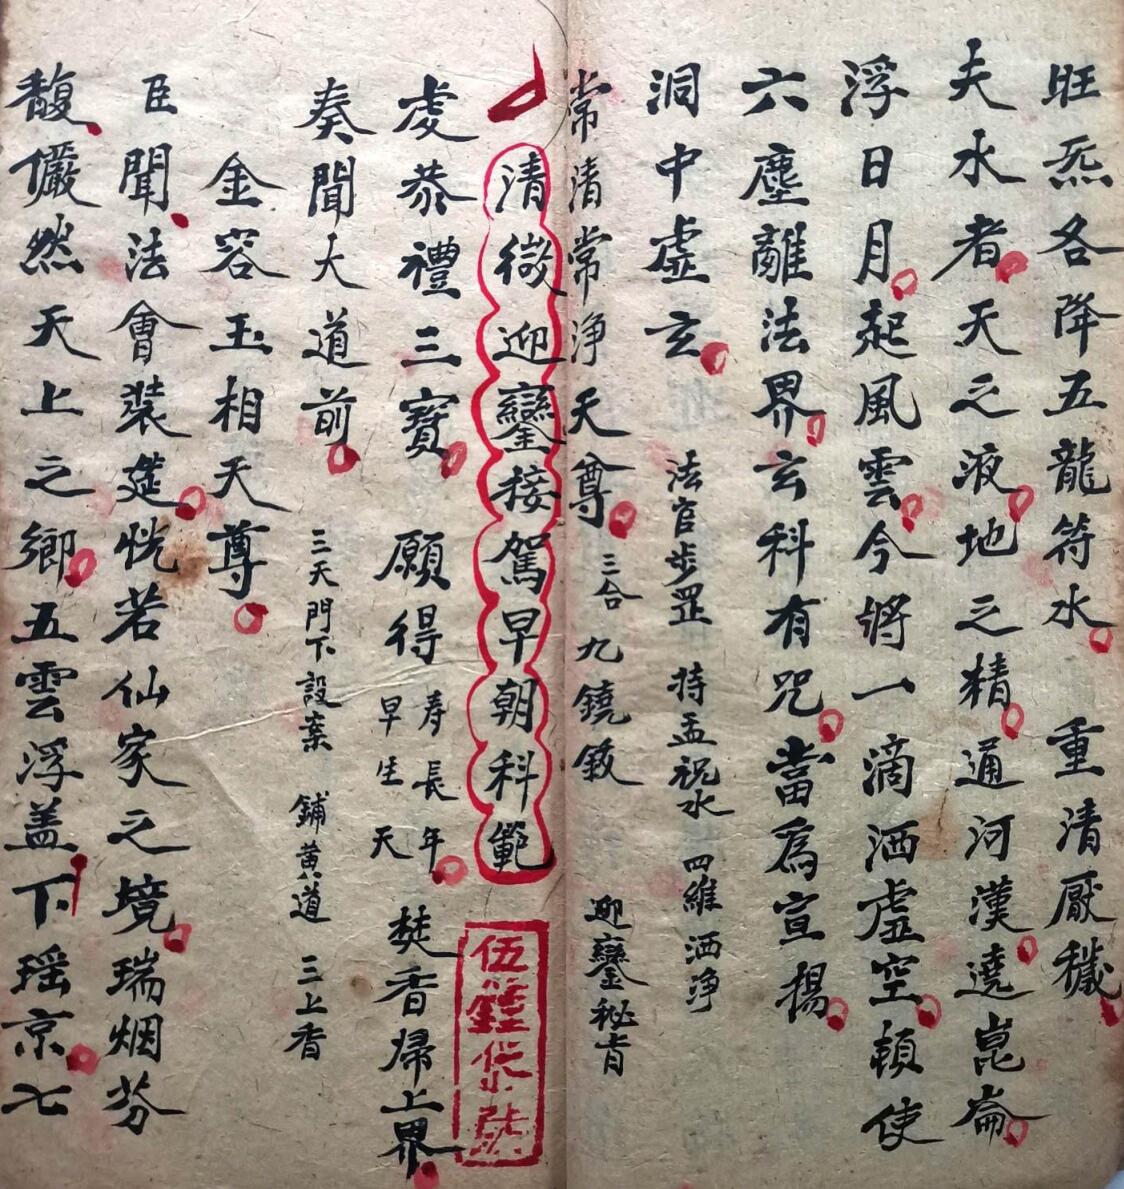 旺炁各降五龍符水 重清厭穢
夫水者天之液地之精通河漢遶崑崙
浮日月起風雲今將一滴洒虛空頓使
六塵離法界玄科有咒當爲宣揚
洞中虛玄 法官步罡 持盂祝水 四維洒淨
常清常淨天尊 三合 九鐃鈸 迎鑾秘旨
清微迎鑾接駕早朝科範
虔恭禮三寶 願得壽長年 早生天 焚香歸上界
奏聞大道前 三天門下設案 鋪黃道 三上香
金容玉相天尊
臣聞法會裝筵恍若仙家之境瑞烟芬
馥儼然天上之鄉五雲浮蓋下瑶京七